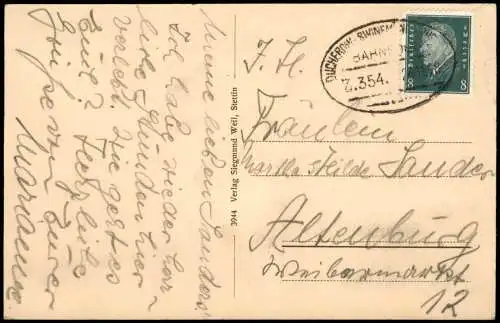 Meine lieben Sanders!
Ich habe wieder herr-
liche Stunden hier
verlebt. Wie geht es
Euch? Herzliche
Grüße von Eurer
Marianne
3944 Verlag Siegmund Weil, Stettin
DUCHEROW-SWINEM
BAHNPO
Z.354.
Deutsches Reich
8 8
Fräulein
Martha Hilde Sander
Altenburg
Weibermarkt
12